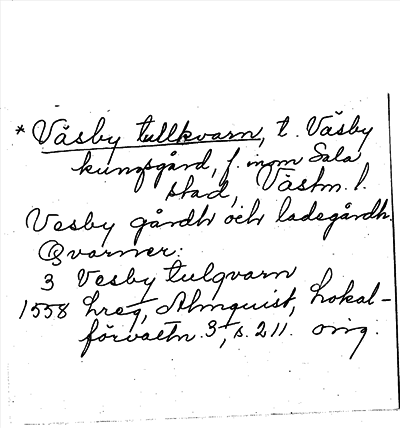 * Väsby tullkvarn, t. Väsby
kungsgård, f. inom Sala
stad, Västm. l.
Vesby gårdh och ladegårdh.
Qvarner:
3 Vesby tulqvarn
1558 hreg, Almquist, Lokal-
förvaltn. 3, s. 211. orig.